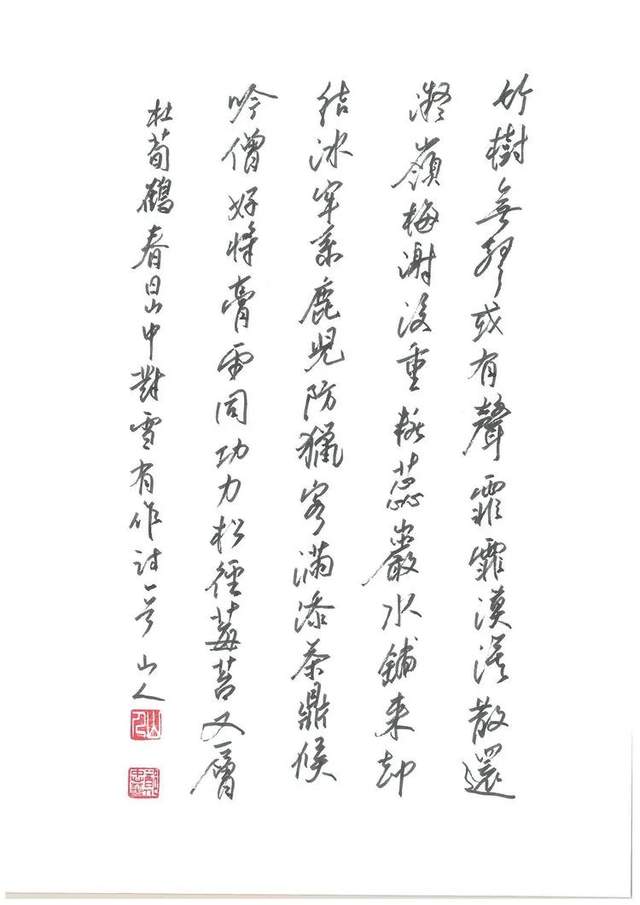 竹樹無聲或有聲霏霏漠漠散還
凝嶺梅謝後重粧蕊巖水鋪來却
結冰牢系鹿兒防獵客滿添茶鼎候
吟僧好將膏雨同功力松徑莓苔又一層
杜荀鶴春日山中對雪有作詩一首 山人
山人